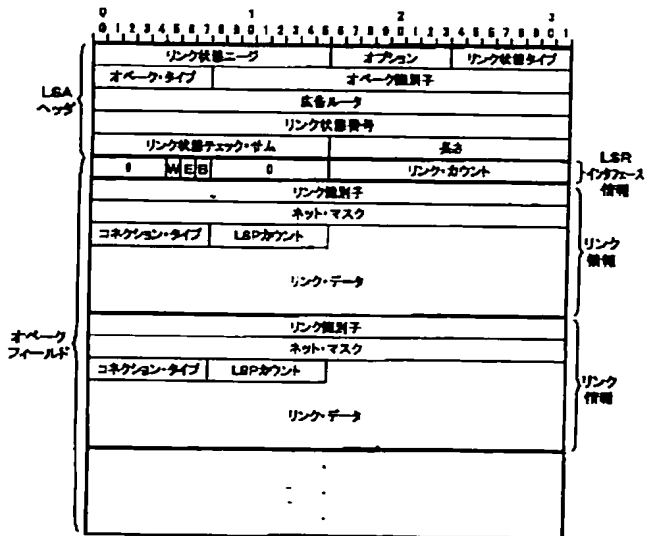 0 1 2 3
0 1 2 3 4 5 6 7 8 9 0 1 2 3 4 5 6 7 8 9 0 1 2 3 4 5 6 7 8 9 0 1
リンク状態エージ オプション リンク状態タイプ
オペーク・タイプ オペーク識別子
LSAヘッダ
広告ルータ
リンク状態番号
リンク状態チェック・サム 長さ
0 W E B 0 リンク・カウント
LSRインタフェース情報
リンク識別子
ネット・マスク
コネクション・タイプ LSPカウント
リンク・データ
リンク情報
オペークフィールド
リンク識別子
ネット・マスク
コネクション・タイプ LSPカウント
リンク・データ
リンク情報